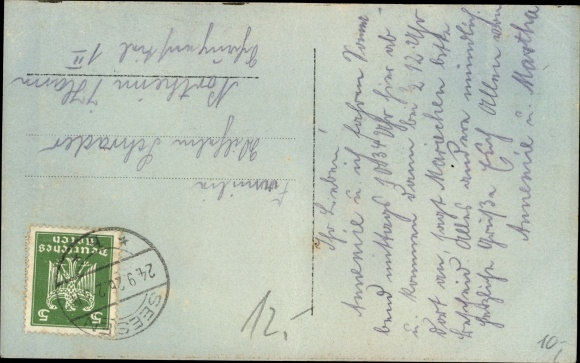 Ihr Lieben!
Annemie u. ich fahren Sonna-
bend mittags 1034 Uhr hier ab
u. kommen dann bei 2 12 Uhr
dort an. sagt Mariechen bitte
Bescheid. Alles andere mündlich
herzliche Grüße Euch Allen von
Annemie u. Martha
Familie
Wilhelm Schrader
Northeim / Hann
1 III
Deutsches
Reich
5 5
24.9.26.2
SEES
12.-
10,-